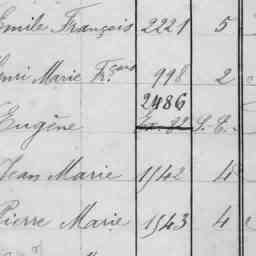 Emile François 2221 5
enri Marie Fr.çois 998 2
2486
Eugène S. C.
Jean Marie 1542 4
Pierre Marie 1543 4